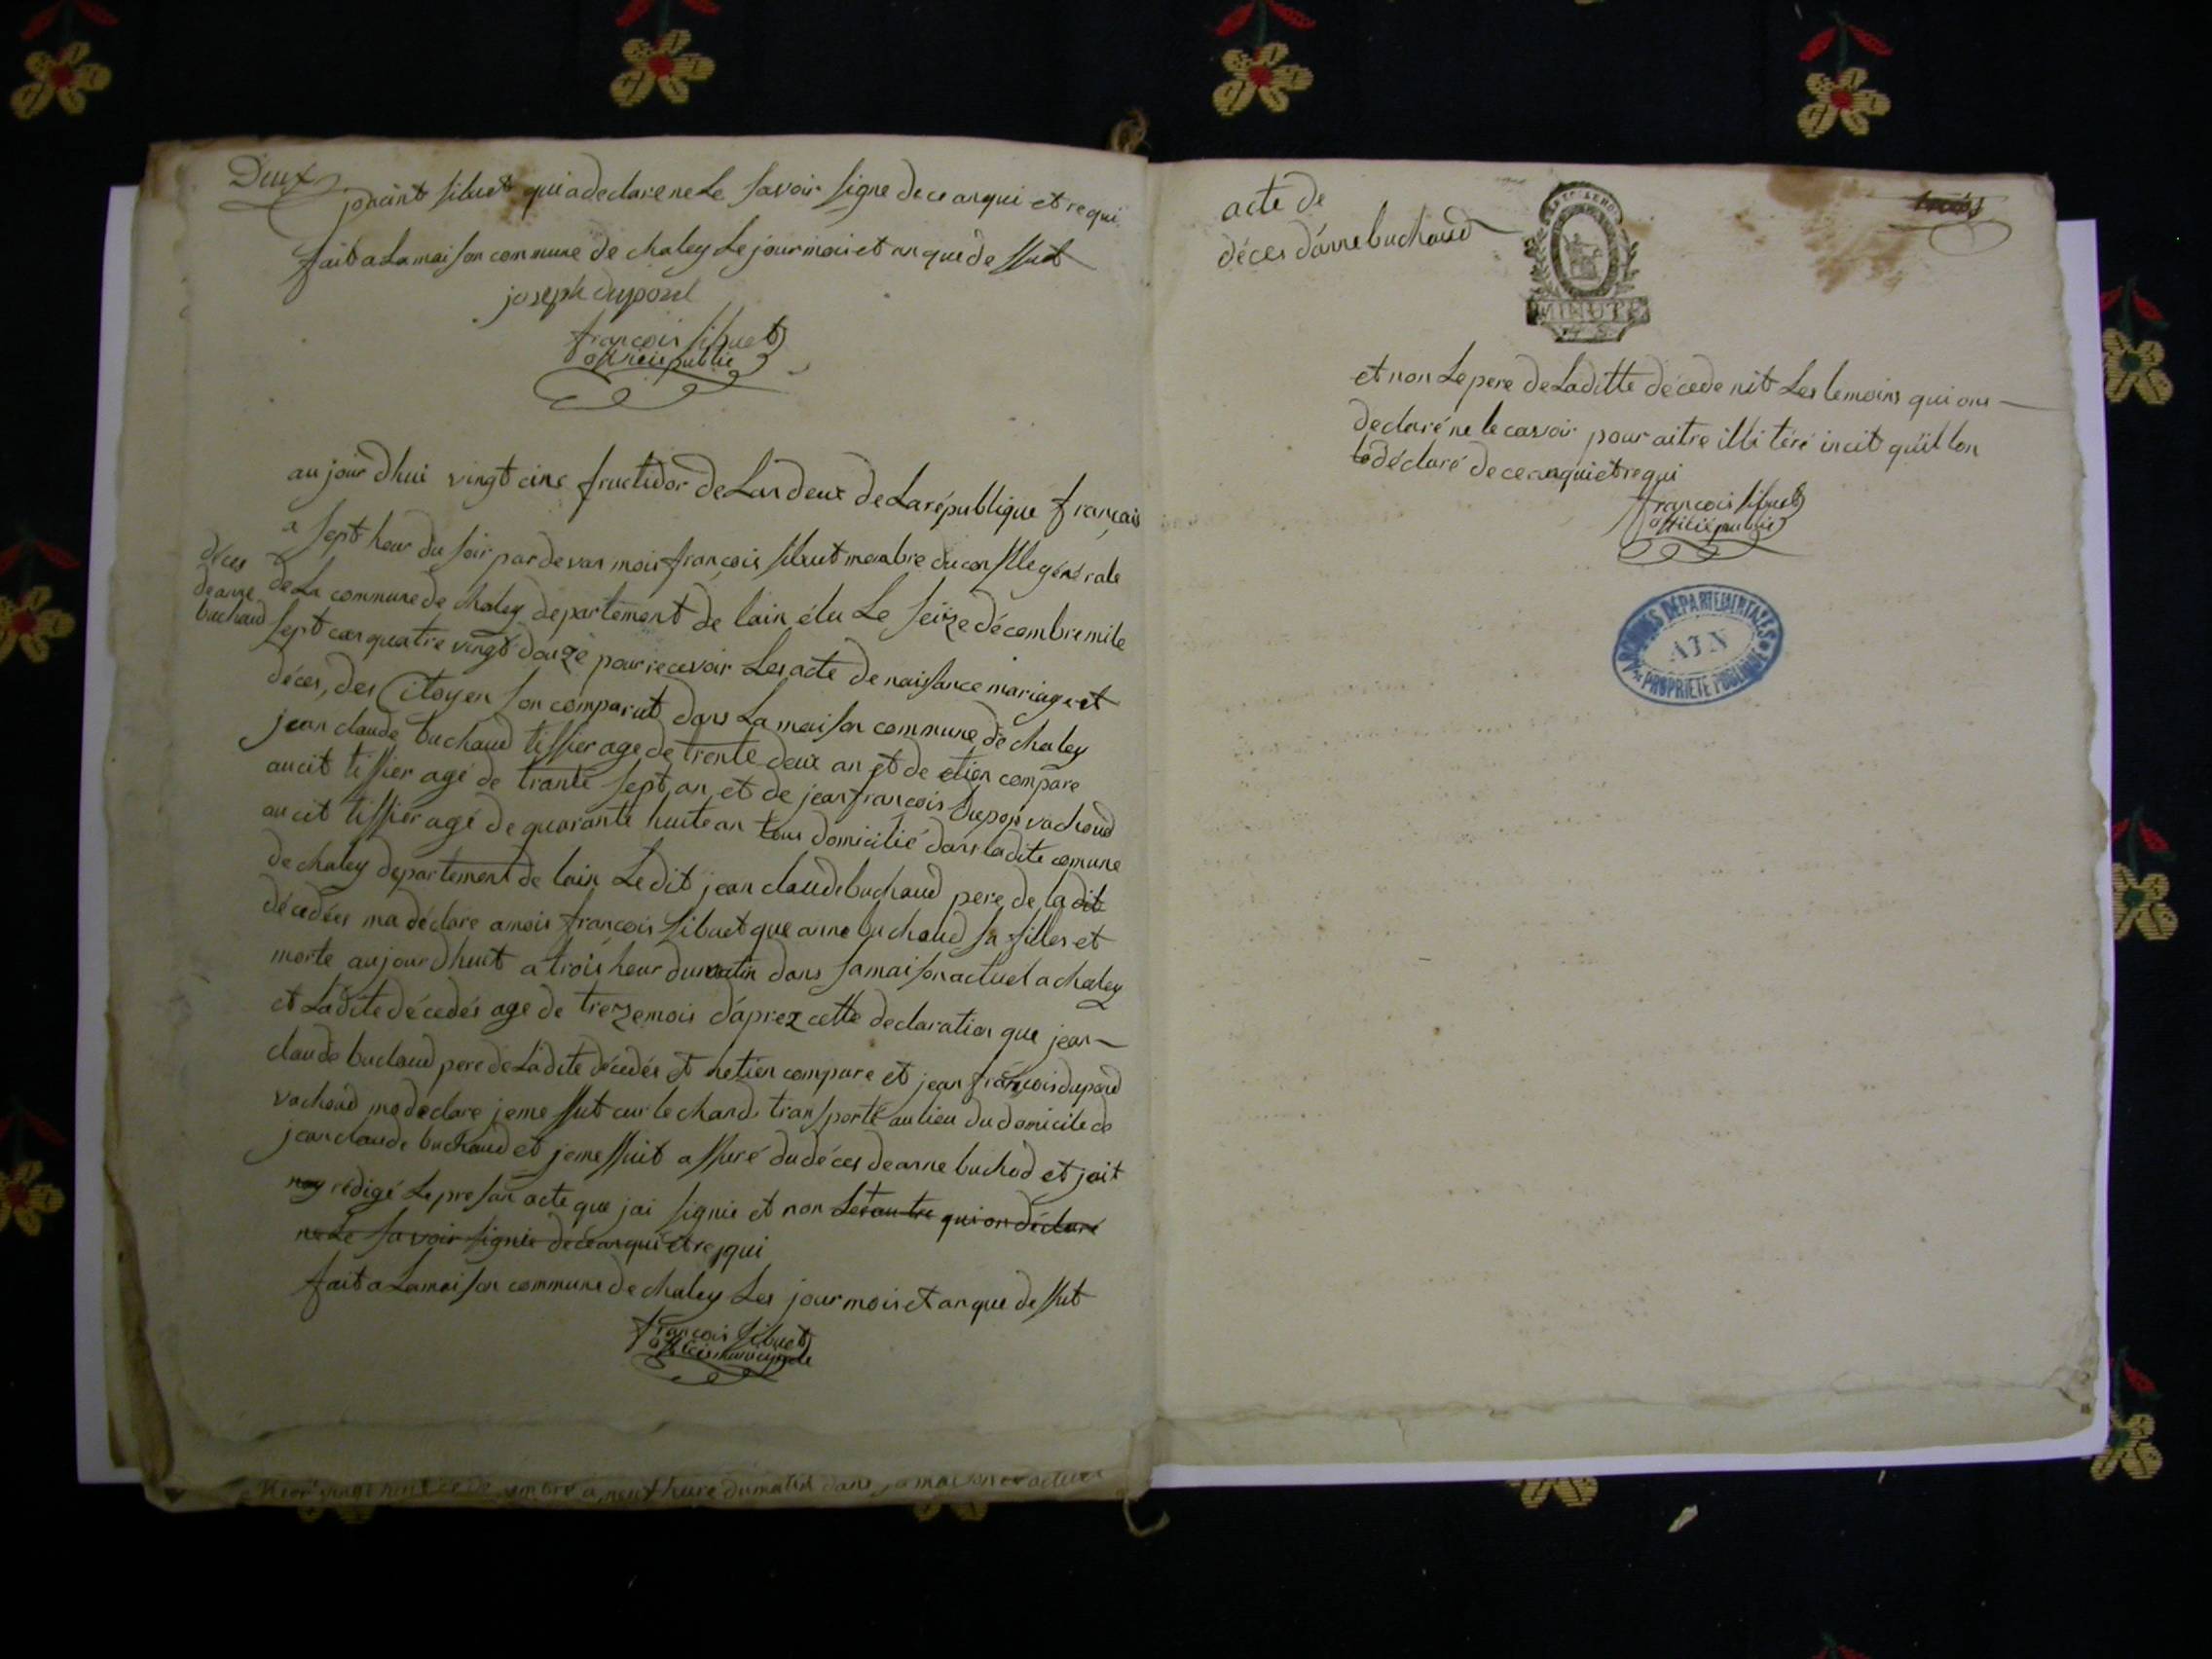 Deux
jacint sibuet qui a declare ne Le savoir signe de ce anqui et requi
fait a La mai son commune de chaley Le jour mois et an que de ssut
joseph dupond
francois sibuet
officié public
au jour dhui vingt cinc fructidor de Lan deux de La république français
a sept heur du soir par devan mois françois sibuet membre du conslle générale
déces
de anne
buchaud
de La commune de chaley departement de lain élu Le seize décembre mile
sept can quatre vingt douze pour recevoir Les acte de naissance mariage et
déces, des Citoyen son comparut dans La maison commune de chaley
jean claude buchaud tissier age de trente deux an et de etien compare
aucit tissier agé de trante sept an et de jean françois Dupon vachoud
aucit tissier agé de quarante huite an tous domicilié dans ladite comune
de chaley departement de lain Le dit jean claude buchaud pere de la dit
décedées ma déclare a mois françois sibuet que anne buchaud sa filles et
morte aujourdhuit a trois heur du matin dans sa maison actuel a chaley
et La dite décedés age de treze mois d'aprez cette declaration que jean
claude buchaud pere de La dite décedés et netien compare et jean françois dupond
vachoud ma déclare je me ssut cur le chand transporté au lieu du domicile de
jean claude buchaud et je me ssuit assuré du déces de anne buchod et jait
rédigé Le presan acte que jai signie et non Les autre qui on déclaré
ne Le savoir signie de ce anqui et requi
fait a La maison commune de chaley Les jour mois et an que de ssut
françois sibuet
officié municipale
hier vingt huit de dessembre a neuf hure du matin dans sa maison actuel
acte de
déces d'anne buchaud
MINUTE
trois
et non Le pere de La ditte décede nit Les temoins qui ons
declaré ne le cavoir pour aitre illitéré incit quil lon
déclaré de ce anqui et requi
francois sibuet
officié public
ARCHIVES DÉPARTEMENTALES
AIN
PROPRIÉTÉ PUBLIQUE